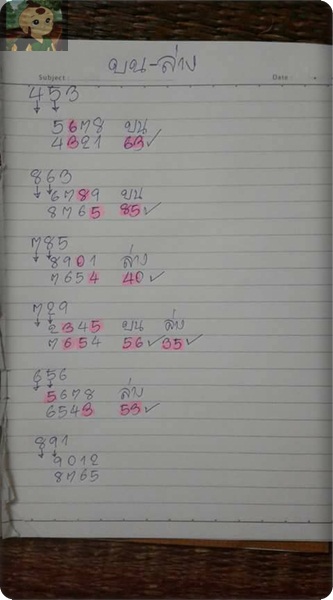 บน-ล่าง
Subject : Date :
453
5678 บน
4321 63✓
863
6789 บน
8765 85✓
785
8901 ล่าง
7654 40✓
729
2345 บน ล่าง
7654 56✓ 35✓
656
5678 ล่าง
6543 53✓
891
9012
8765